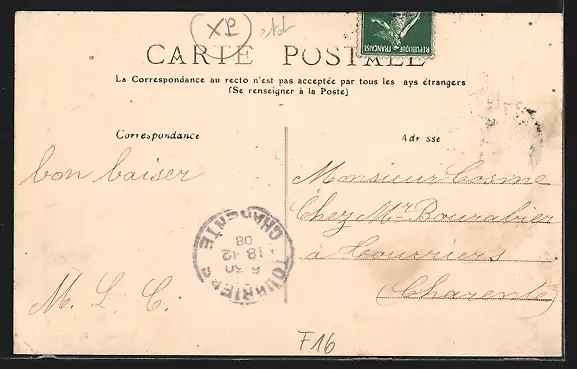 XP
CARTE POSTALE
REPUBLIQUE FRANÇAISE
La Correspondance au recto n'est pas acceptée par tous les ays étrangers
(Se renseigner à la Poste)
Correspondance
Adr sse
bon baiser
M. L. C.
Monsieur Cosme
Chez Mr Bourabier
à Tourriers
(Charente)
TOURRIERS
6 30
18 -12
08
CHARENTE
F16